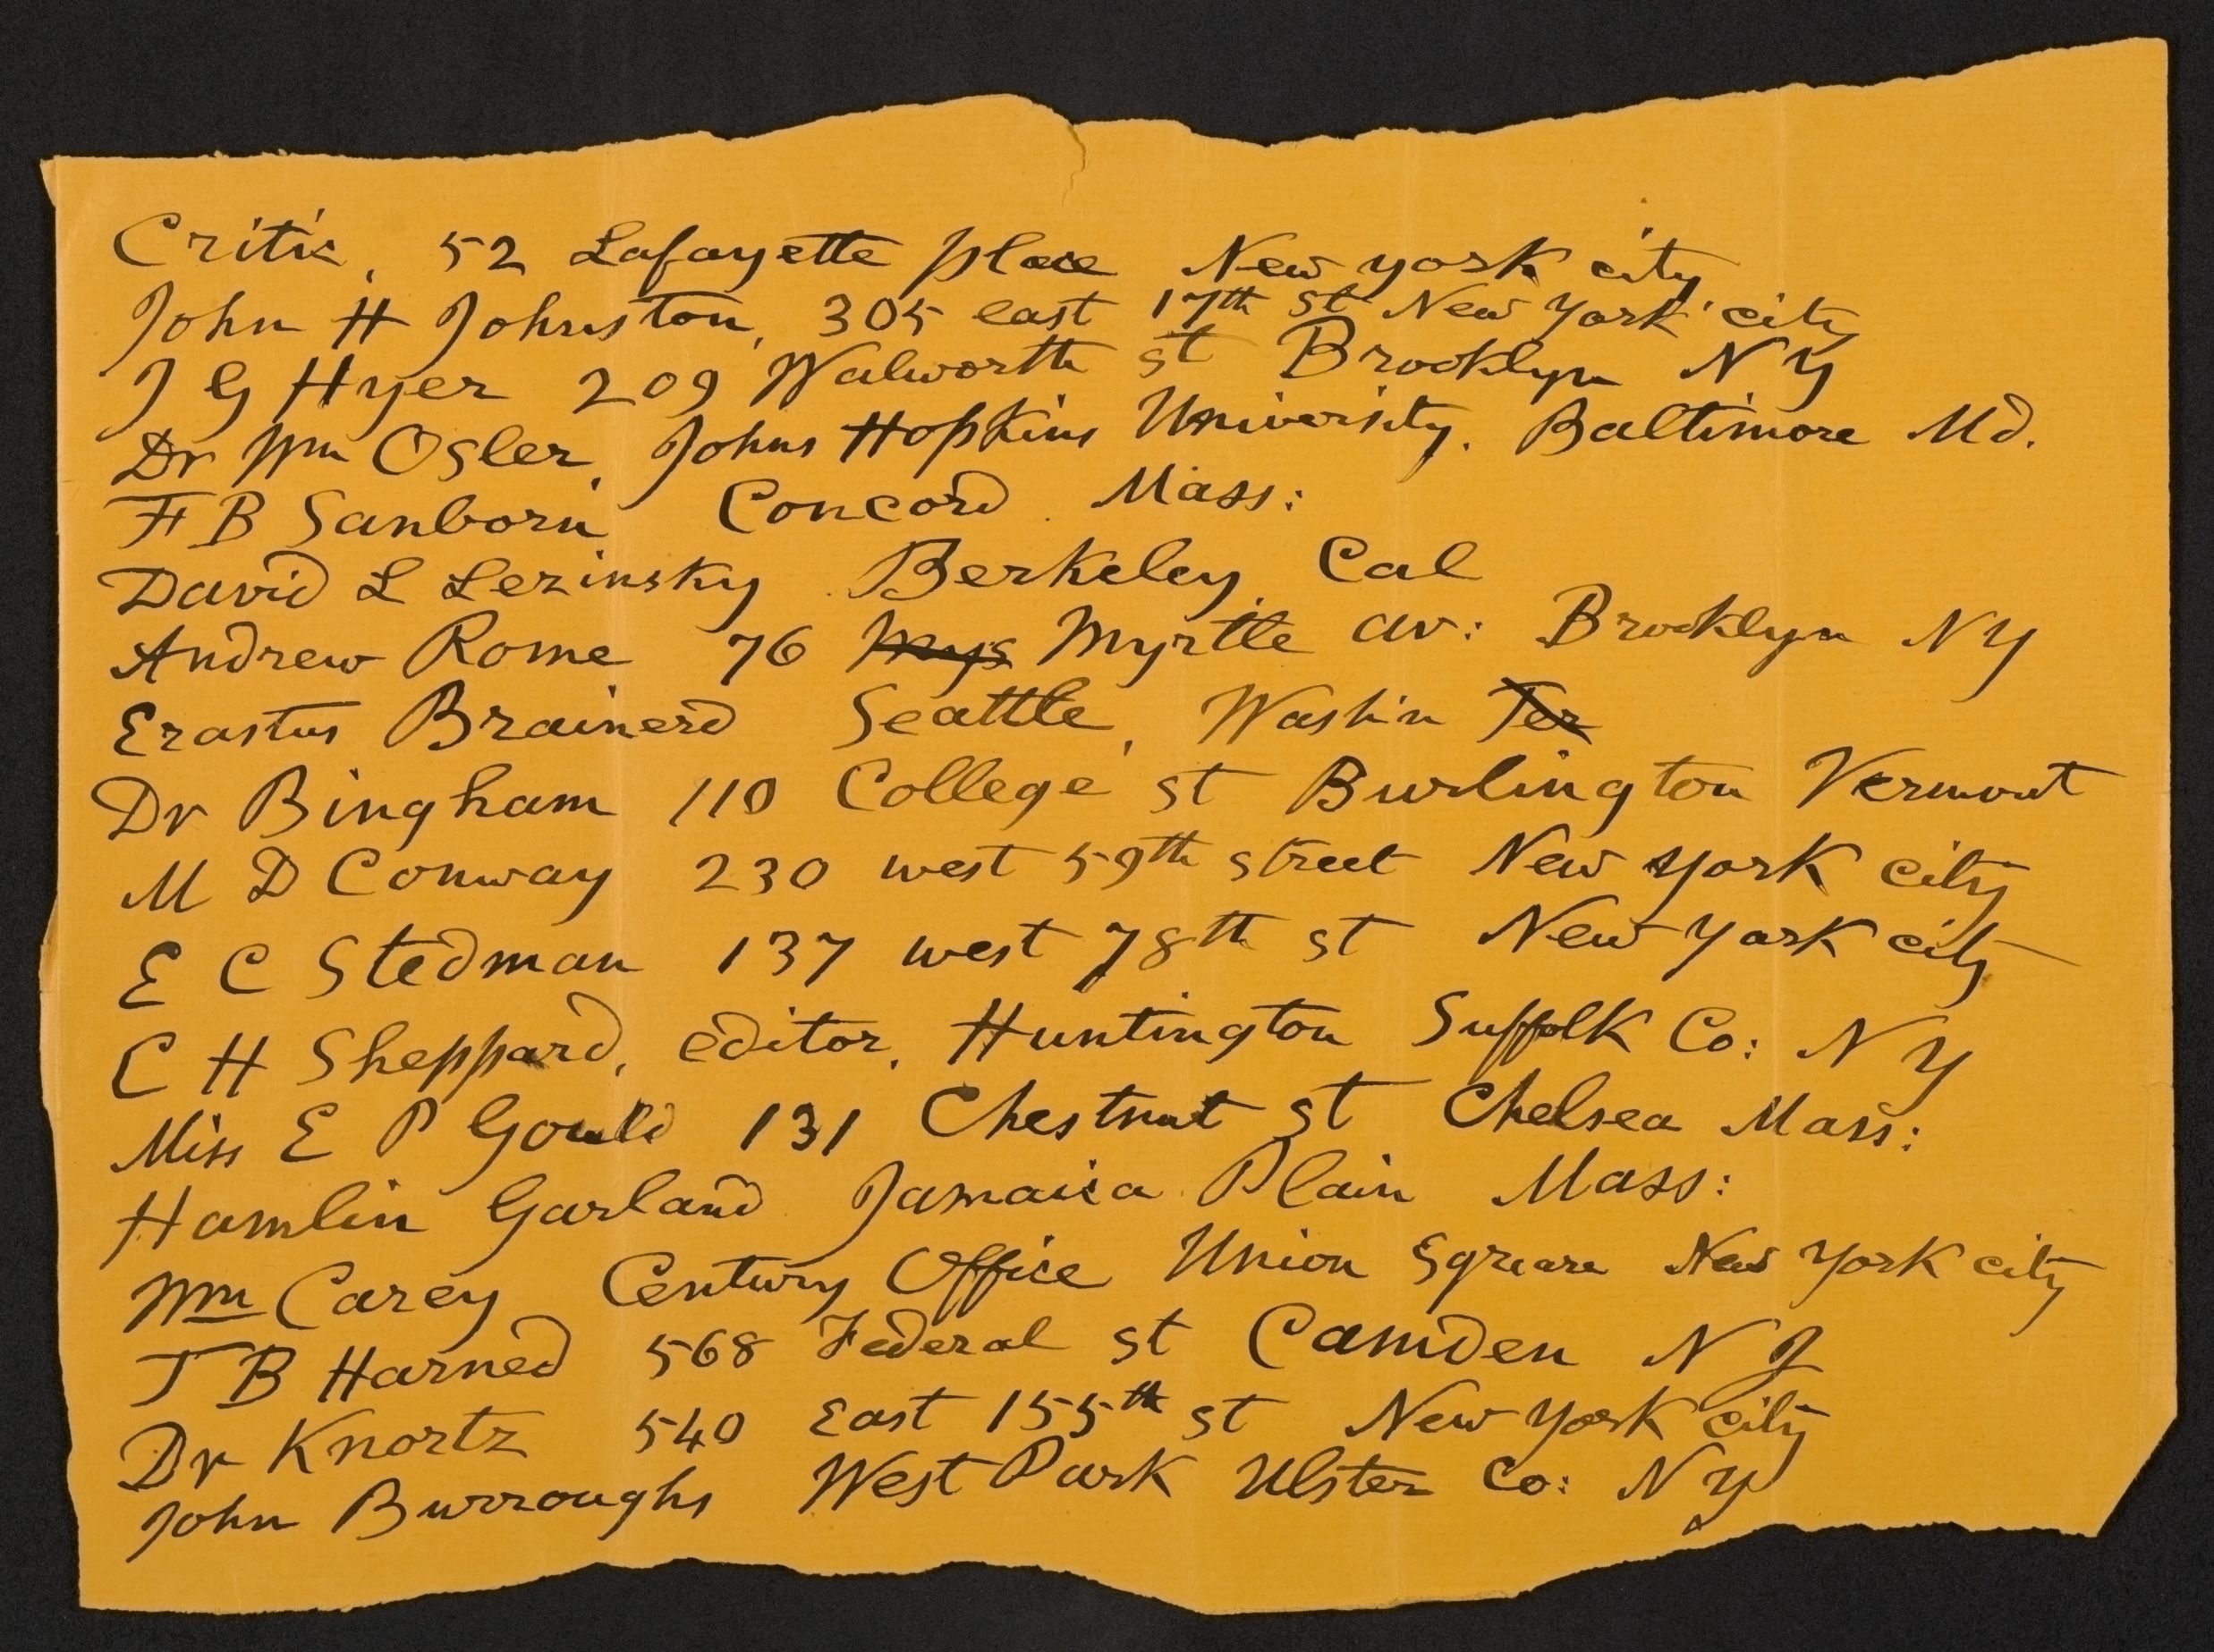 Critic, 52 Lafayette place New York city
John H Johnston, 305 east 17th st New York city
J G Hyer 209 Walworth st Brooklyn N Y
Dr Wm Osler, Johns Hopkins University, Baltimore Md.
F B Sanborn Concord Mass:
David L Lezinsky Berkeley, Cal
Andrew Rome 76 Mys Myrtle av: Brooklyn N Y
Erastus Brainerd Seattle, Washin Ter
Dr Bingham 110 College st Burlington Vermont
M D Conway 230 west 59th street New York city
E C Stedman 137 west 78th st New York city
C H Sheppard, editor, Huntington Suffolk Co: N Y
Miss E P Gould 131 Chestnut st Chelsea Mass:
Hamlin Garland Jamaica Plain Mass:
Wm Carey Century Office Union Square New York city
T B Harned 568 Federal st Camden N J
Dr Knortz 540 East 155th st New York city
John Burroughs West Park Ulster Co: N Y